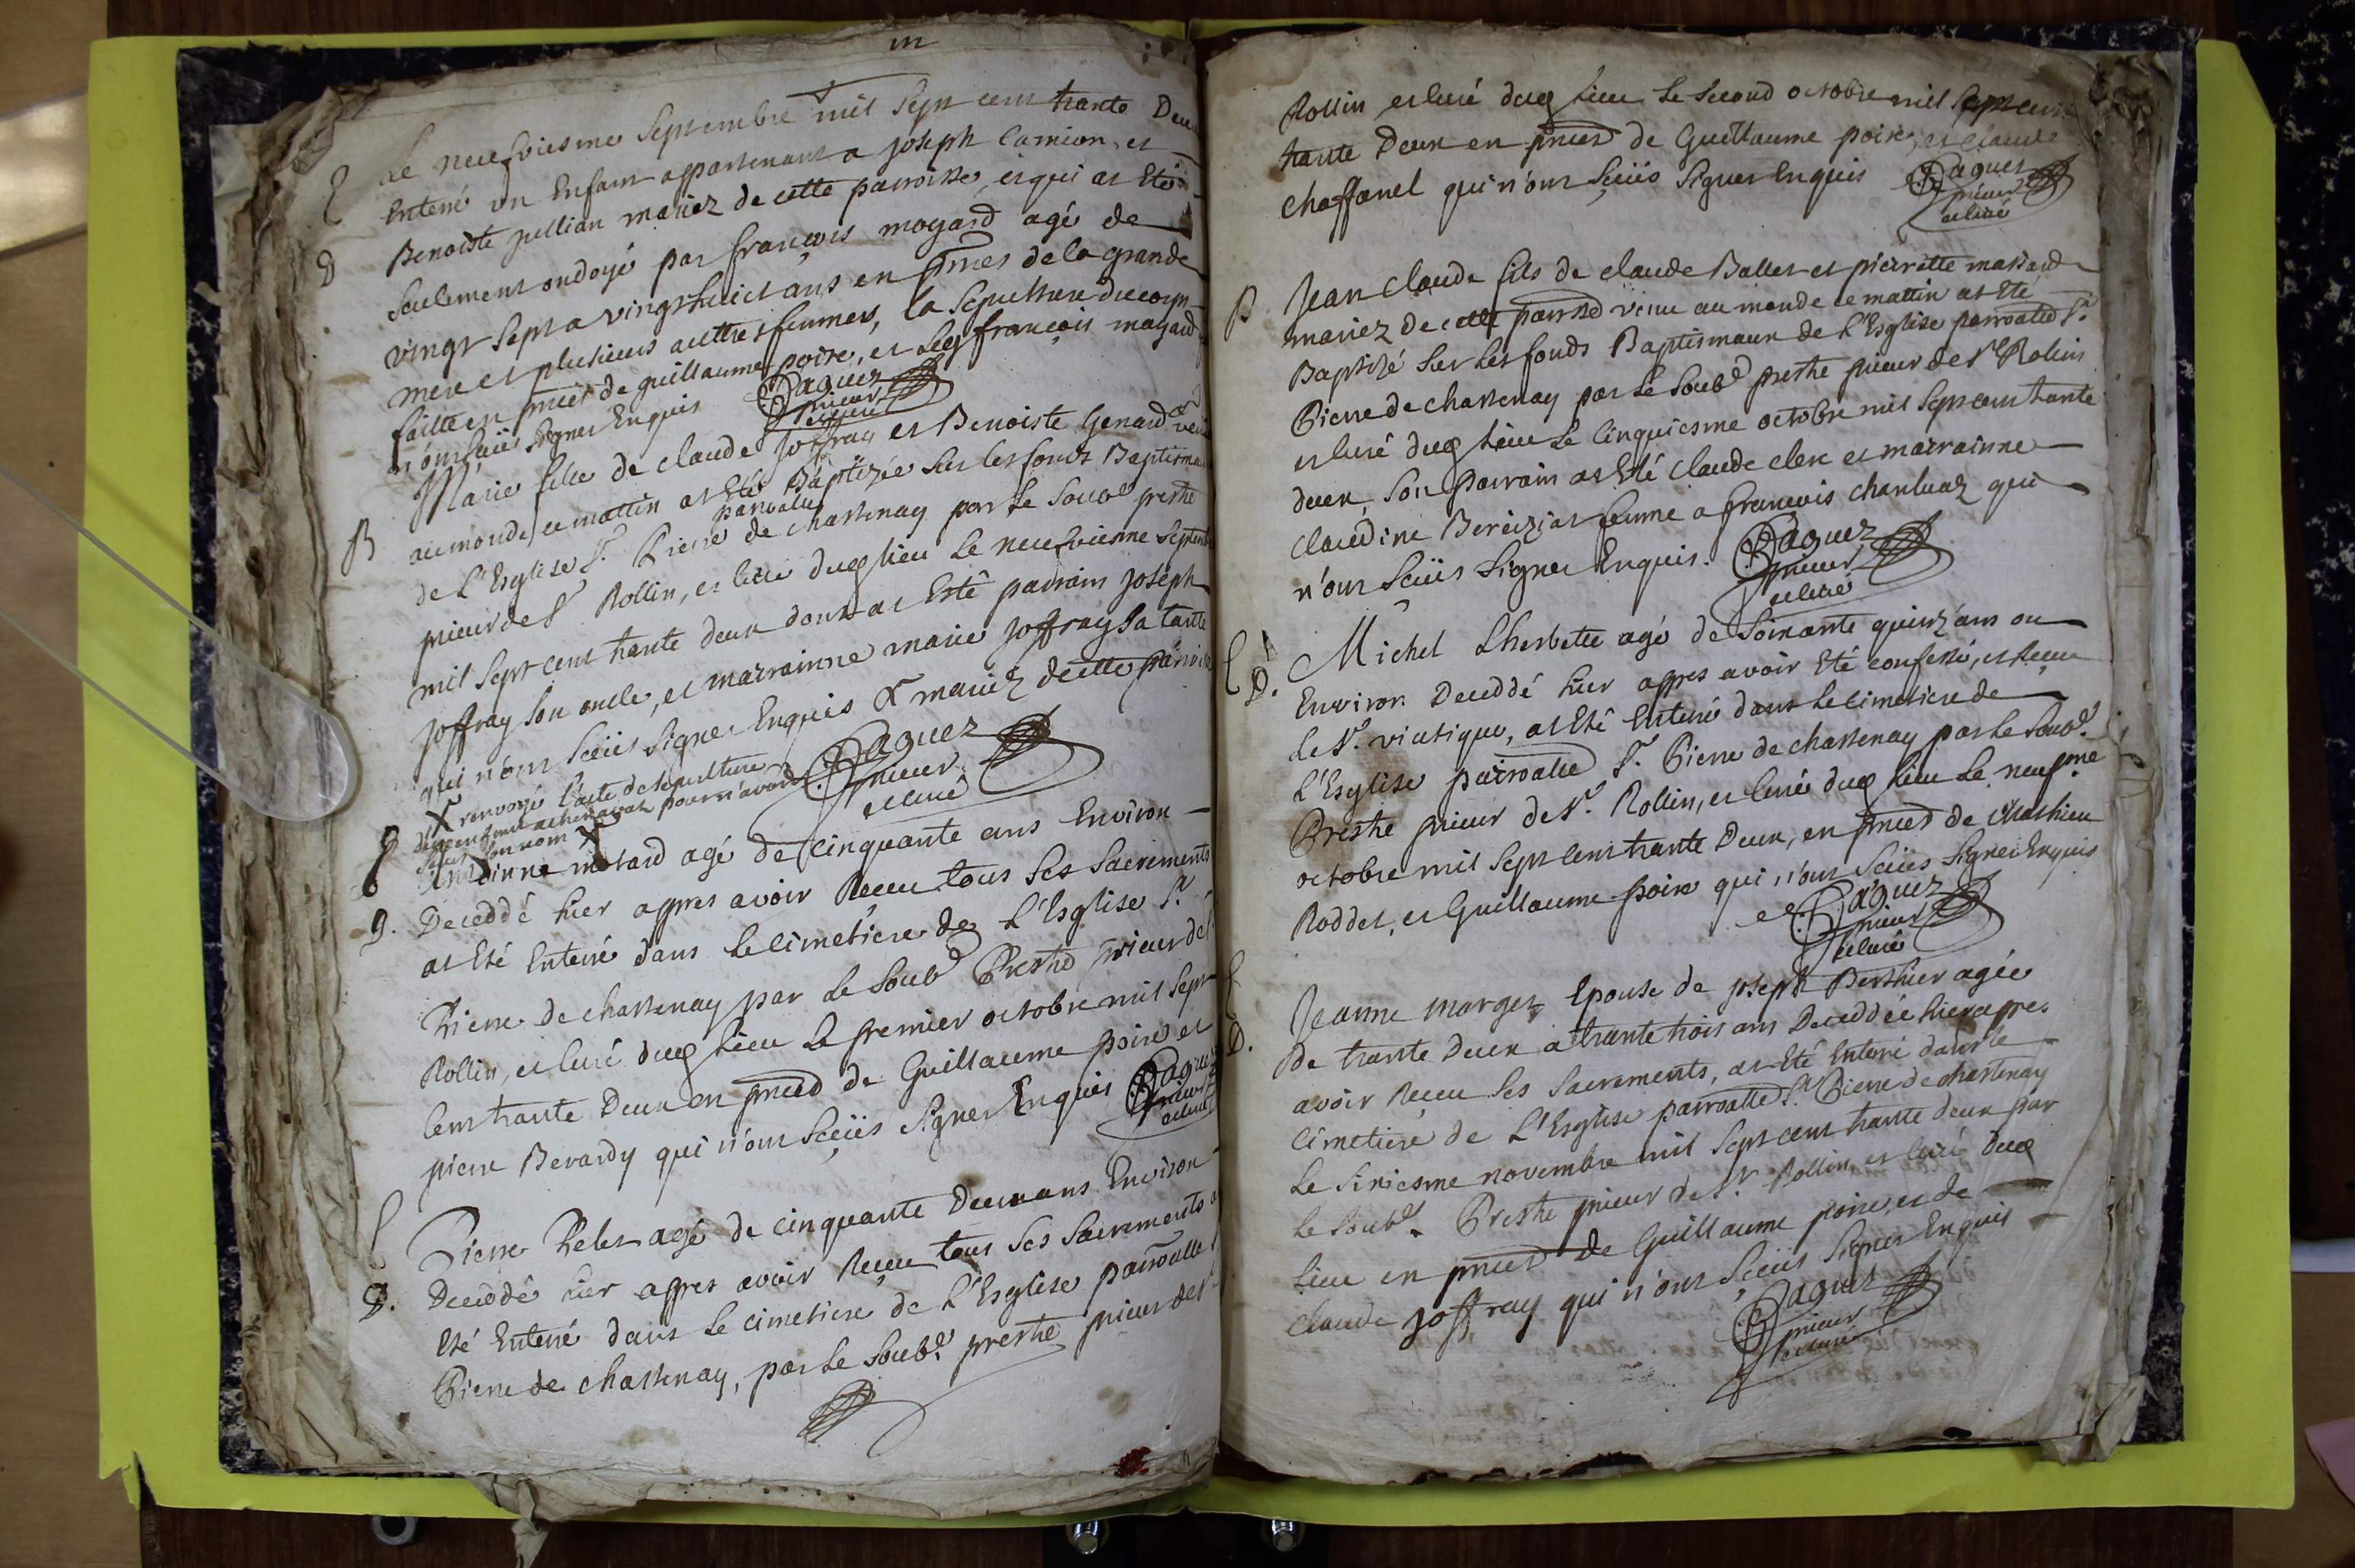 m
Le neufviesme Septembre mil Sept cent trante Deux
Enterré un Enfant appartenant a joseph Camion, et
Benoiste jullian mariez de cette parroisse, et qui at Eté
Seulement ondoyé par françois moyard agé de
vingt Sept a vingt huict ans en pnces de la grande
mere et plusieurs auttres femmes, la Sepulture du corp
faitte en pnces de guillaume poire, et led françois moyard
n'ont sceüs signer Enquis Paquez
prieur
et curé
B
Marie fille de claude joffray et Benoiste Genard venüe
au monde ce mattin at Eté Baptizée Sur les fonds Baptismaux
parroalle
de L'Esglise St. Pierre de chastenay par Le Soubd prestre
prieur de St Rollin, et curé dud lieu Le neufviesme Septembre
mil Sept cent trante deux dont at Esté parrain joseph
joffray Son oncle, et marrainne marie joffray Sa tante
qui n'ont sceüs Signer Enquis X mariez de cette parroisse
X renvoyé l'acte de sepulture
Paquez
prieur
et curé
son nom X
motard agé de cinquante ans Environ
D. Deceddé hier appres avoir Receu tous Ses Sacrements
at Eté Enterré dans Le cimetiere de L'Esglise St
Pierre de chastenay par Le Soubd Prestre prieur de St
Rollin, et curé dud lieu Le premier octobre mil Sept
Cent trante Deux en pnced de Guillaume poire et
pierre Berardy qui n'ont Sceüs Signer Enquis Paquez
prieur
et curé
Pierre agé de cinquante Deux ans Environ
D. Deceddé hier appres avoir Receu tous Ses Sacrements at
Eté Enterré dans Le cimetiere de L'Esglise parroalle St
Pierre de chastenay, par Le Soubd. prestre prieur de St
Rollin et curé dud lieu Le Second octobre mil Sept cent
trante Deux en pnced de Guillaume poire, et claude
chaffanel qui n'ont Sceüs Signer Enquis Paquez
prieur
et curé
B
Jean claude fils de claude Ballet et pierrette massard
mariez de cette parrsse venu au monde ce mattin at Eté
Baptizé Sur Les fonds Baptismaux de L'Esglise parroalle St.
Pierre de chastenay par Le Soubd prestre prieur de St Rolin
et curé dud lieu Le Cinquiesme octobre mil Sept cent trante
deux, Son parrain at Eté claude clerc et marrainne
claudine Bereiziat femme a francois chanluaz qui
n'ont Sceüs Signer Enquis. Paquez
prieur
et curé
Michel Lherbette agé de Soixante quinz'ans ou
D. Environ Deceddé hier appres avoir Eté confessé, et Receu
Le St. viatique, at Eté Enterré dans Le cimetiere de
L'Esglise parroalle St. Pierre de chastenay par Le Soubd.
Prestre prieur de St. Rollin, et curé dud lieu Le neufme
octobre mil Sept Cent trante Deux, en pnced de Mathieu
Roddet, et Guillaume poire qui n'ont Sceüs Signer Enquis
Paquez
prieur
et curé
Jeanne marget Epouse de joseph Berthier agée
D. De trante Deux a trante trois ans Deceddée hier appres
avoir Receu Ses Sacrements, at Eté Enterré dans Le
Cimetiere de L'Esglise parroalle St Pierre de chastenay
Le Sixiesme novembre mil Sept cent trante deux par
Le Soubd. Prestre prieur de St. Rollin, et curé dud
Lieu en pnced de Guillaume poire, et de
claude joffray qui n'ont Sceüs Signer Enquis
Paquez
prieur
et curé